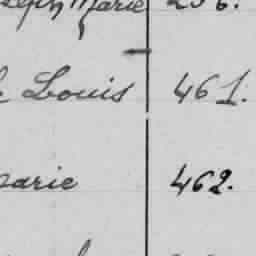 Marie 236.
Louis 461.
marie 462.